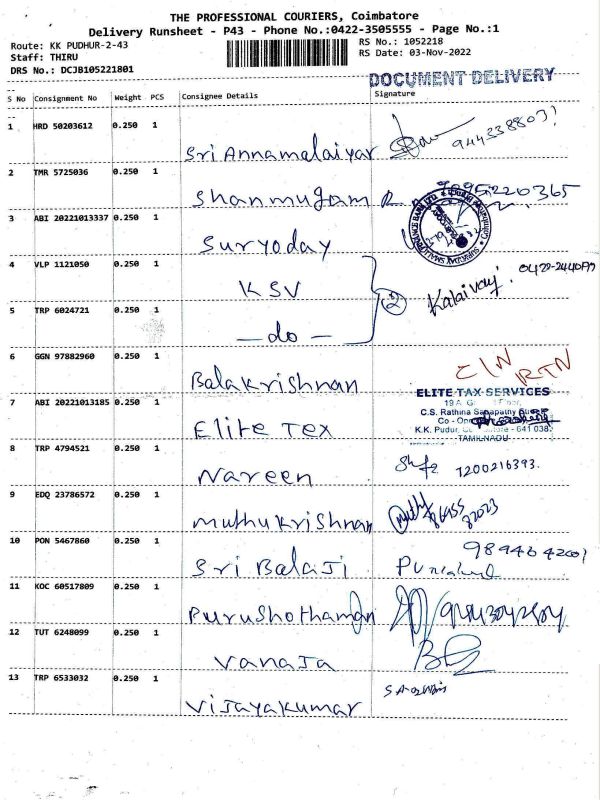 THE PROFESSIONAL COURIERS, Coimbatore
Delivery Runsheet - P43 - Phone No.:0422-3505555 - Page No.:1
Route: KK PUDHUR-2-43
RS No.: 1052218
Staff: THIRU
RS Date: 03-Nov-2022
DRS No.: DCJB105221801
DOCUMENT DELIVERY
S No Consignment No Weight PCS Consignee Details Signature
1 HRD 50203612 0.250 1
Sri Annamalaiyar
2 TMR 5725036 0.250 1
Shanmugam
3 ABI 20221013337 0.250 1
Suryoday
4 VLP 1121050 0.250 1
KSV
2 Kalaivani
5 TRP 6024721 0.250 1
— do —
6 GGN 97882960 0.250 1
Balakrishnan
CIN RTN
7 ABI 20221013185 0.250 1
ELITE TAX SERVICES
C.S. Rathina Sabapathy Street
K.K. Pudur, - 641 038.
TAMILNADU
Elite Tex
8 TRP 4794521 0.250 1
Nareen
7200216393.
9 EDQ 23786572 0.250 1
Muthukrishnan
10 PON 5467860 0.250 1
Sri Balaji
11 KOC 60517809 0.250 1
Purushothaman
12 TUT 6248099 0.250 1
Vanaja
13 TRP 6533032 0.250 1
Vijayakumar